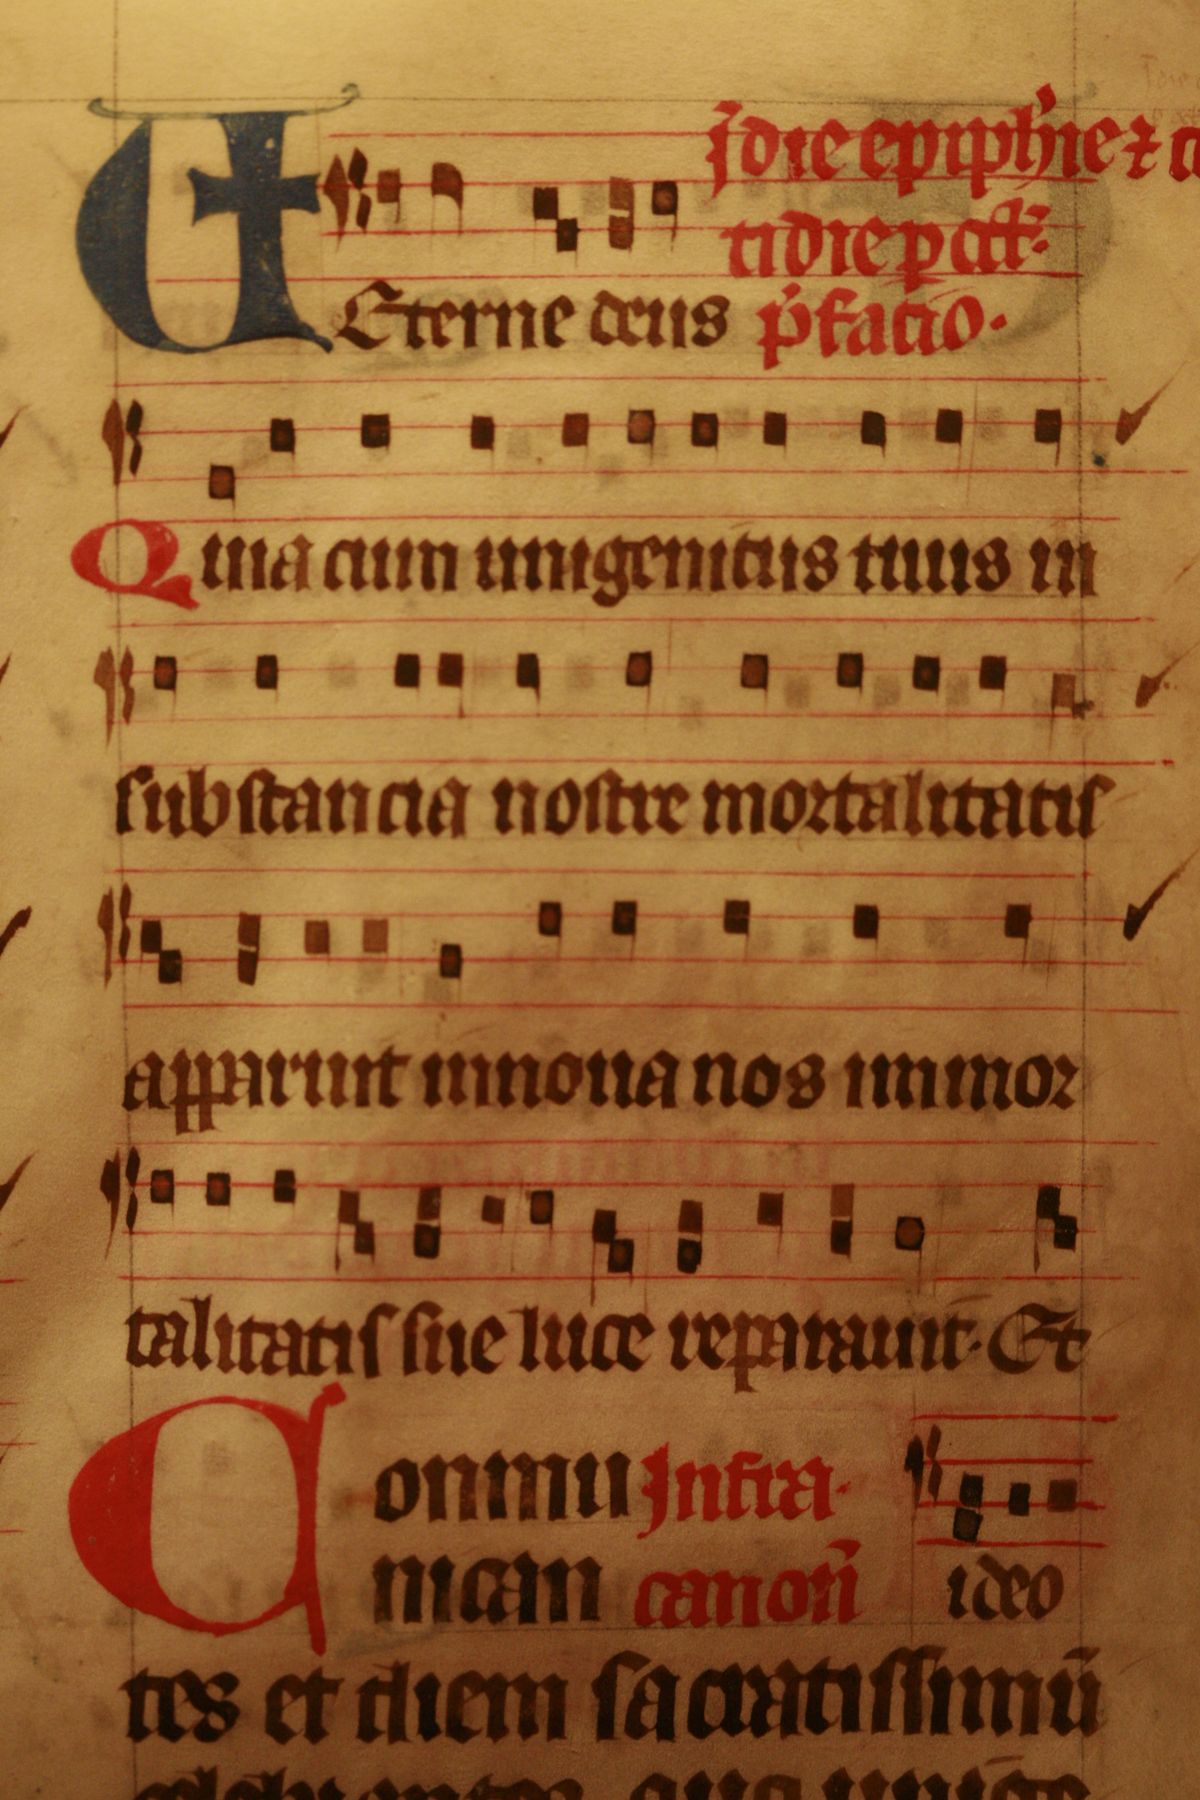 J die epiphie ⁊
tidie p oct̄.
Eterne deus p̄fatio.
Quia cum unigenitus tuus in
substancia nostre mortalitatis
apparuit innoua nos inmor
talitatis sue luce reparauit. Et
Conmu Infra
nican canon̄ ideo
tes et diem sacratissimū